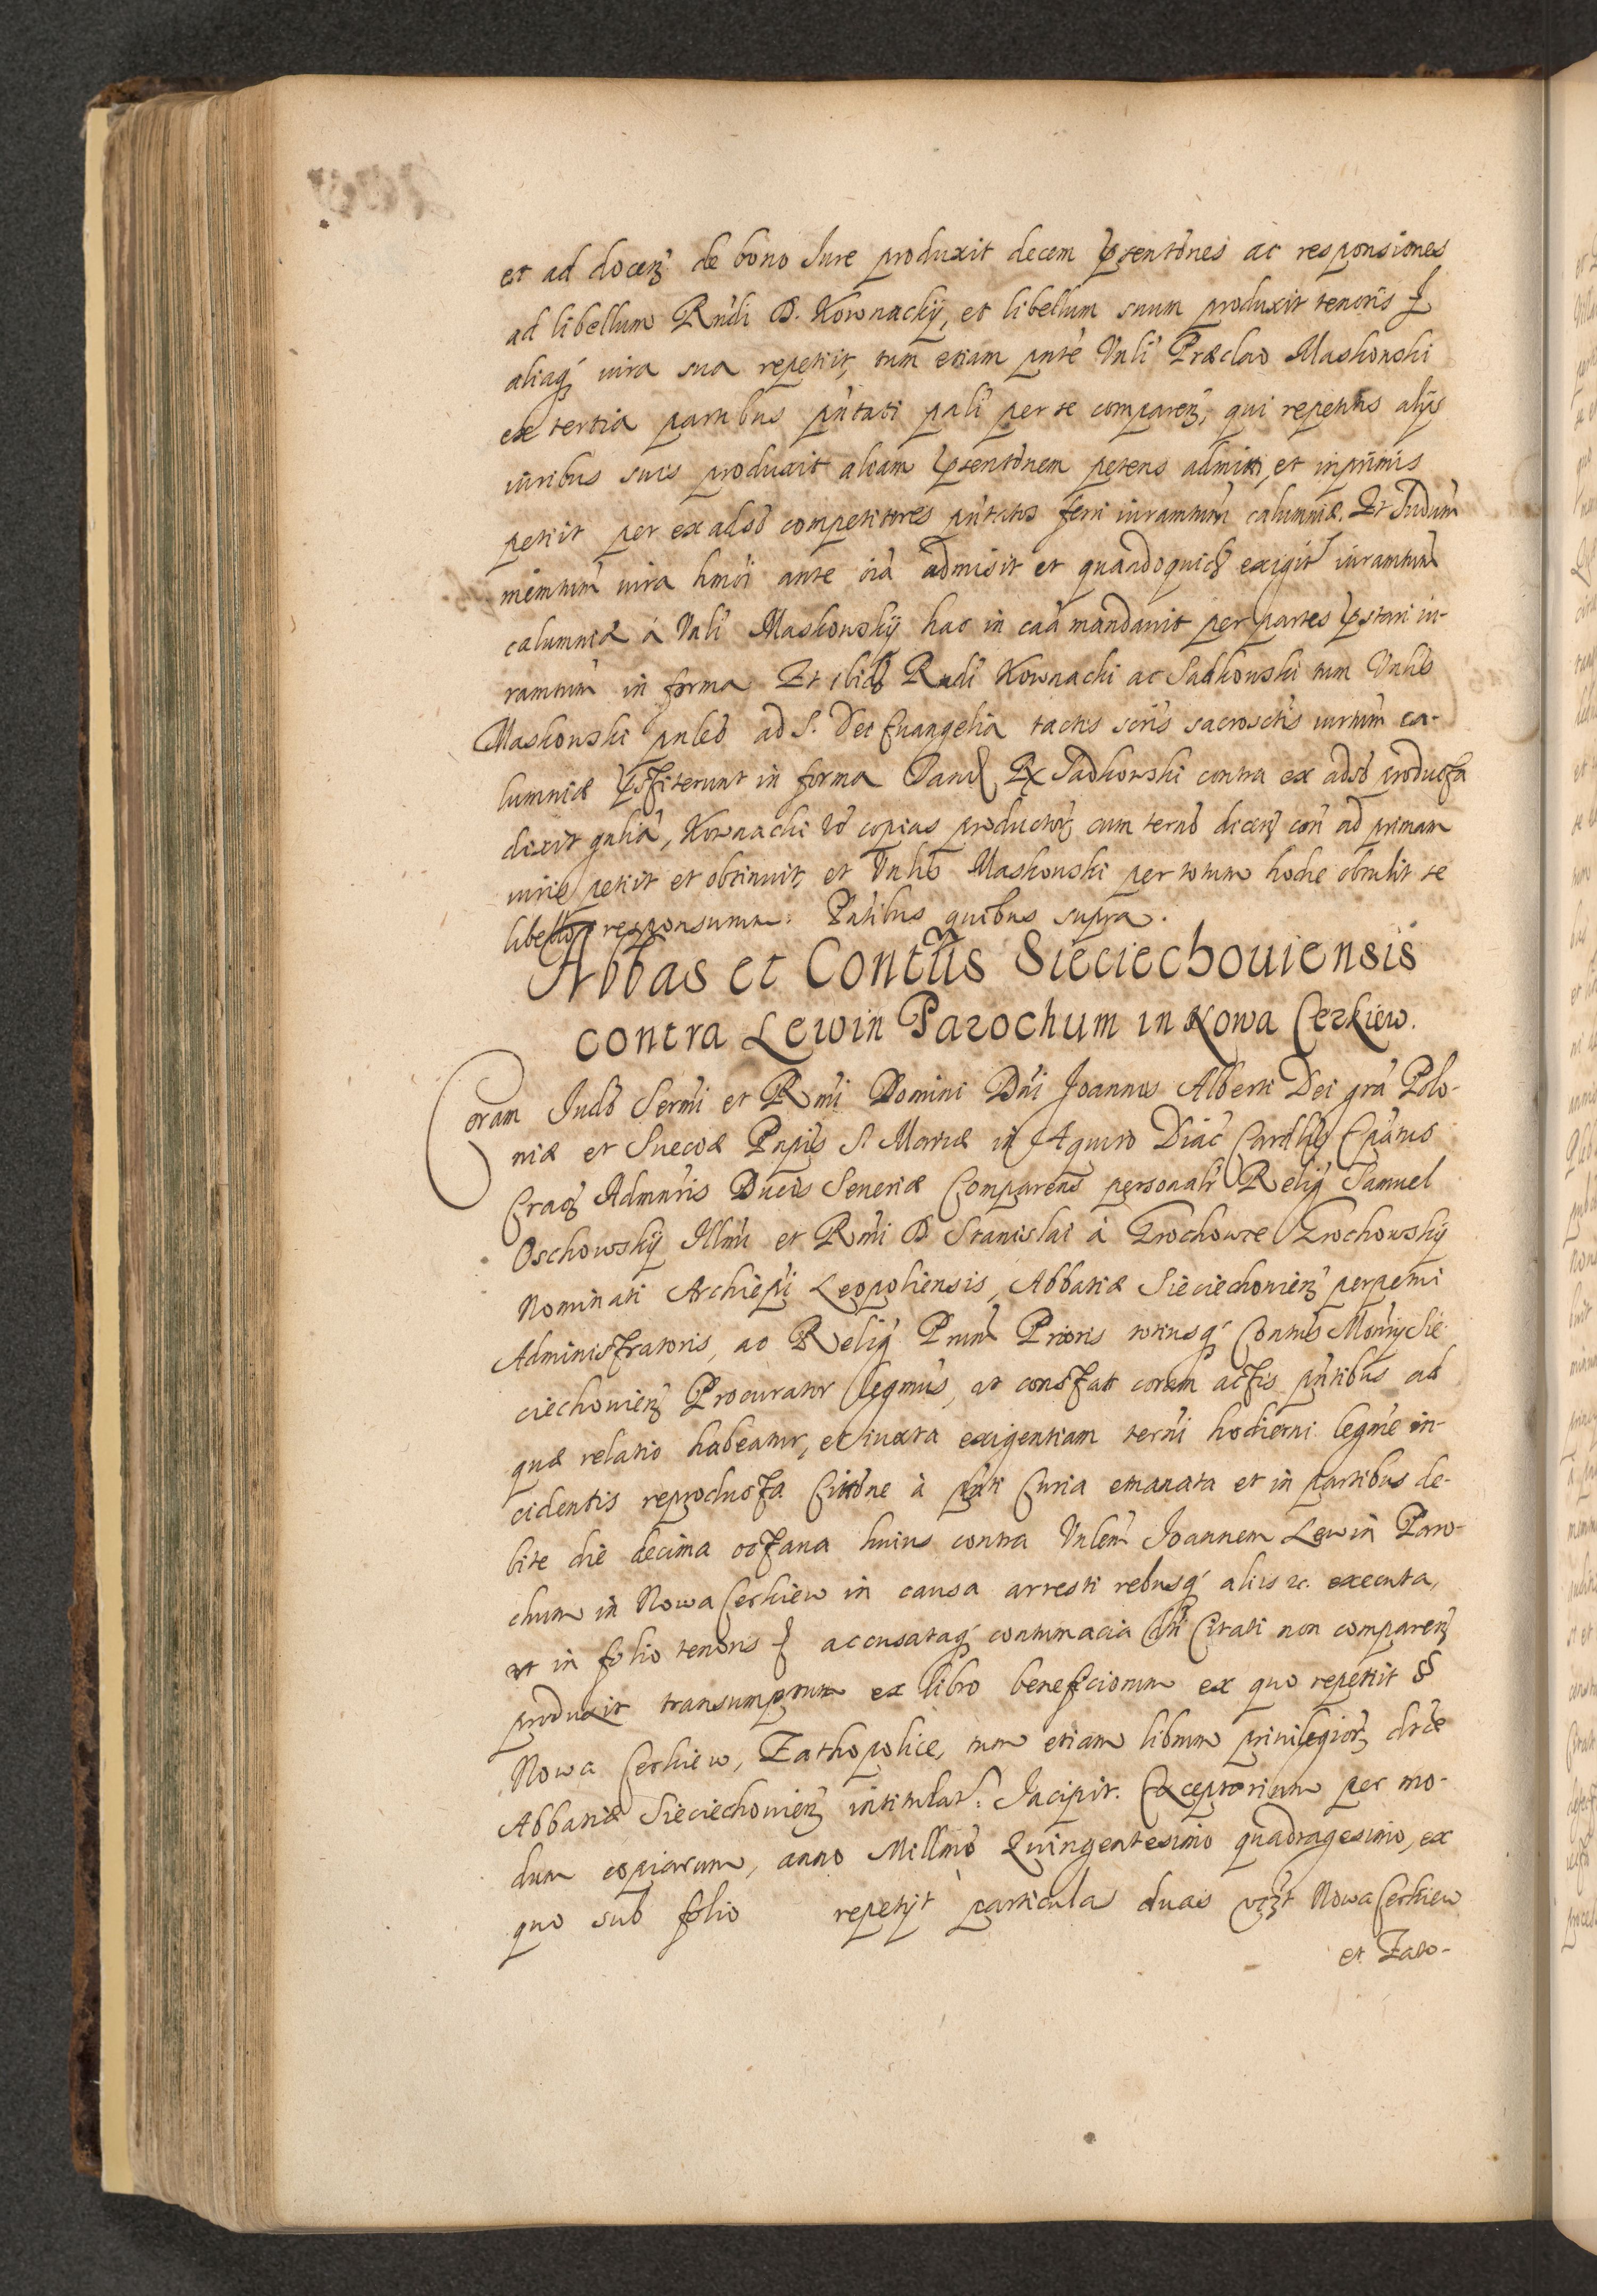 et ad docen de bono Jure produxit decem pntentones ac responsiones
ad libellum Rndi D. Kownackÿ, et libellum suum produxit tenoris
aliaq iura sua repetiit, tum etiam pnte Vnli Præclao Maskowski
ex tertia partibus pntati pali per se comparen, qui repetitis alijs
iuribus suis produxit aliam pntentonem petens admitti, et inprimis
petiit per ex adso competitores pntatos ferri iuramtum calumniæ. Et Judum
memtum iura hmoi ante oia admisit et quandoquid exigit iuramtum
calumniæ á Vnli Maskowskÿ hac in caa mandauit per partes pstari iu-
ramtum in forma Et ibid Rndi Kownacki ac Sadkowski tum Vnlis
Maskowski ad S. Dei Euangelia tactis scris sacrosctis iurtum ca-
lumniæ in forma Tand Sadkowski contra ex adso producta
dixit gnlia, Kownacki copias productor cum termo dicen con ad primam
iuris petiit et obtinuit, et Vnlis Maskowski per totum hodie obtulit se
libello responsurum. Pntibus quibus supra.
Abbas et Contus Sieciechouiensis
contra Lewin Parochum in Nowa Cerkiew.
Coram Judo Sermi et Rmi Domini Dni Joannis Alberti Dei gra Polo-
niæ et Sueciæ Pnpis S. Mariæ in Aquiro Diac Cardlis Epatus
Crac Admnris Ducis Seueriæ Comparens personalr Relig Samuel
Oschowskÿ Illmi et Rmi D Stanislai á Grochowce Grochowskÿ
Nominati Archiepi Leopoliensis, Abbatiæ Sieciechouien perpetui
Administratoris, ac Relig Prioris totiusq Contus Monrÿ Sie-
ciechouien Procurator legmus, ut constat coram actis pntibus ad
quæ relatio habeatur, et iuxta exigentiam termi hodierni legme in-
cidentis reproducta Cittone à pnti Curia emanata et in partibus de-
bite die decima octaua huius contra Vnlem Joannem Lewin Paro-
chum in Nowa Cerkiew in causa arresti rebusq aliis &c. executa,
ut in folio tenoris accusataq contumacia dti Citati non comparen
produxit transumptum ex libro beneficiorum ex quo repetiit §
Nowa Cerkiew, Zathopolice, tum etiam librum priuilegior dictæ
Abbatiæ Sieciechouien intitulat. Incipit. Exceptorium per mo-
dum copiarum, anno Millmo Quingentesimo quadragesimo, ex
quo sub folio repetÿt particulas duas vzt Nowa Cerkiew
et Zato-